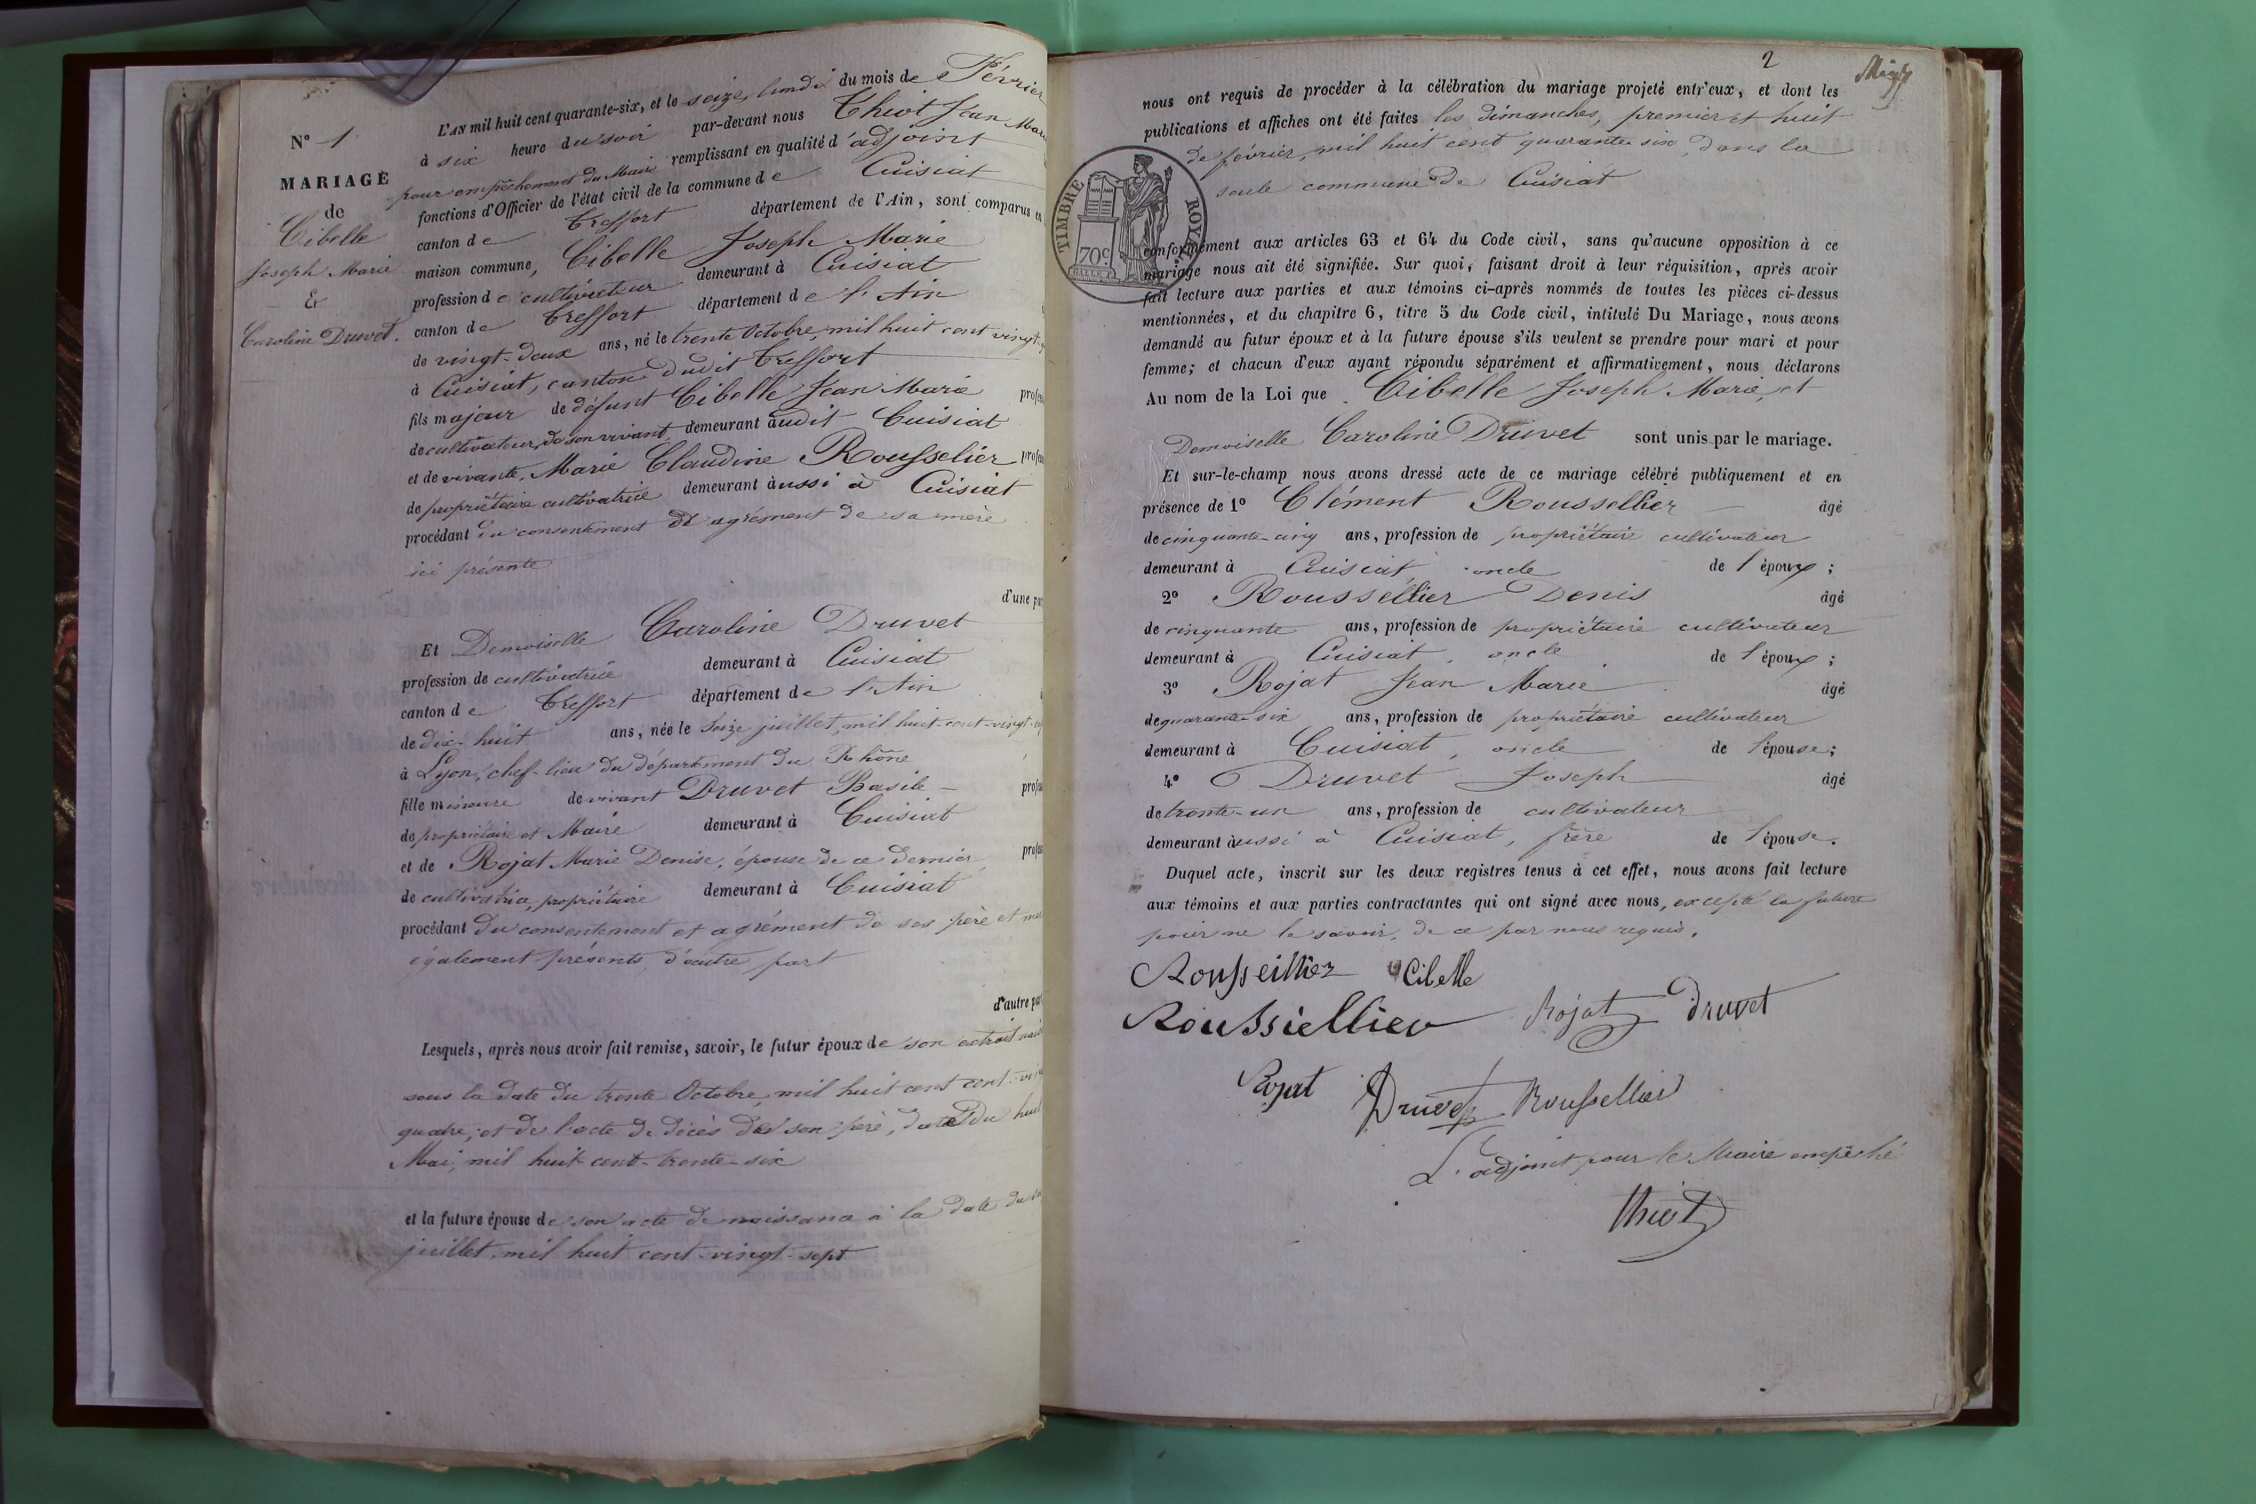 N° 1
MARIAGE
de
Cibelle
Joseph Marie
&
Caroline Druvet.
L'AN mil huit cent quarante-six, et le seize, lundi du mois de Février
à six heure du soir par-devant nous Thiot Jean Marie
pour empêchement du Maire remplissant en qualité d'adjoint
fonctions d'Officier de l'état civil de la commune de Cuisiat
canton de Treffort département de l'Ain, sont comparus en
maison commune, Cibelle Joseph Marie
profession de cultivateur demeurant à Cuisiat
canton de Treffort département de l'Ain
de vingt-deux ans, né le trente Octobre, mil huit cent vingt
à Cuisiat, canton dudit Treffort
fils majeur de défunt Cibelle Jean Marie
de cultivateur, de son vivant, demeurant audit Cuisiat
et de vivante, Marie Claudine Rousselier
de propriétaire cultivatrice demeurant aussi à Cuisiat
procédant du consentement et agrément de sa mère
ici présente
d'une part
Et Demoiselle Caroline Druvet
profession de cultivatrice demeurant à Cuisiat
canton de Treffort département de l'Ain
de dix-huit ans, née le seize juillet, mil huit-cent-vingt
à Lyon, chef-lieu du département du Rhône
fille mineure de vivant Druvet Basile
de propriétaire et Maire demeurant à Cuisiat
et de Rojat Marie Denise, épouse de ce dernier
de cultivatrice, propriétaire demeurant à Cuisiat
procédant du consentement et agrément de ses père et mère
également présents, d'autre part
d'autre part
Lesquels, après nous avoir fait remise, savoir, le futur époux de son extrait
sous la date du trente Octobre, mil huit cent cent-vingt
quatre; et de l'acte de décès de son père, daté du huit
Mai, mil huit-cent-trente-six
et la future épouse de son acte de naissance à la date du
juillet, mil huit cent-vingt-sept
2
nous ont requis de procéder à la célébration du mariage projeté entr'eux, et dont les
publications et affiches ont été faites les dimanches, premier et huit
de février, mil huit cent quarante six, dans la
seule commune de Cuisiat
TIMBRE ROYAL
70c
conformément aux articles 63 et 64 du Code civil, sans qu'aucune opposition à ce
mariage nous ait été signifiée. Sur quoi, faisant droit à leur réquisition, après avoir
fait lecture aux parties et aux témoins ci-après nommés de toutes les pièces ci-dessus
mentionnées, et du chapitre 6, titre 5 du Code civil, intitulé Du Mariage, nous avons
demandé au futur époux et à la future épouse s'ils veulent se prendre pour mari et pour
femme; et chacun d'eux ayant répondu séparément et affirmativement, nous déclarons
Au nom de la Loi que Cibelle Joseph Marie, et
Demoiselle Caroline Druvet sont unis par le mariage.
Et sur-le-champ nous avons dressé acte de ce mariage célébré publiquement et en
présence de 1° Clément Rousselier âgé
de cinquante-cinq ans, profession de propriétaire cultivateur
demeurant à Cuisiat, oncle de l'époux;
2° Roussellier Denis âgé
de cinquante ans, profession de propriétaire cultivateur
demeurant à Cuisiat, oncle de l'époux;
3° Rojat Jean Marie âgé
de quarante-six ans, profession de propriétaire cultivateur
demeurant à Cuisiat, oncle de l'épouse;
4° Druvet Joseph âgé
de trente-un ans, profession de cultivateur
demeurant aussi à Cuisiat, frère de l'épouse.
Duquel acte, inscrit sur les deux registres tenus à cet effet, nous avons fait lecture
aux témoins et aux parties contractantes qui ont signé avec nous, excepté la future
pour ne le savoir, de ce par nous requis.
Rousseillier Cibelle
Roussiellier Rojat Druvet
Rojat Druvet Roussellier
L'adjoint pour le Maire empêché
Thiot